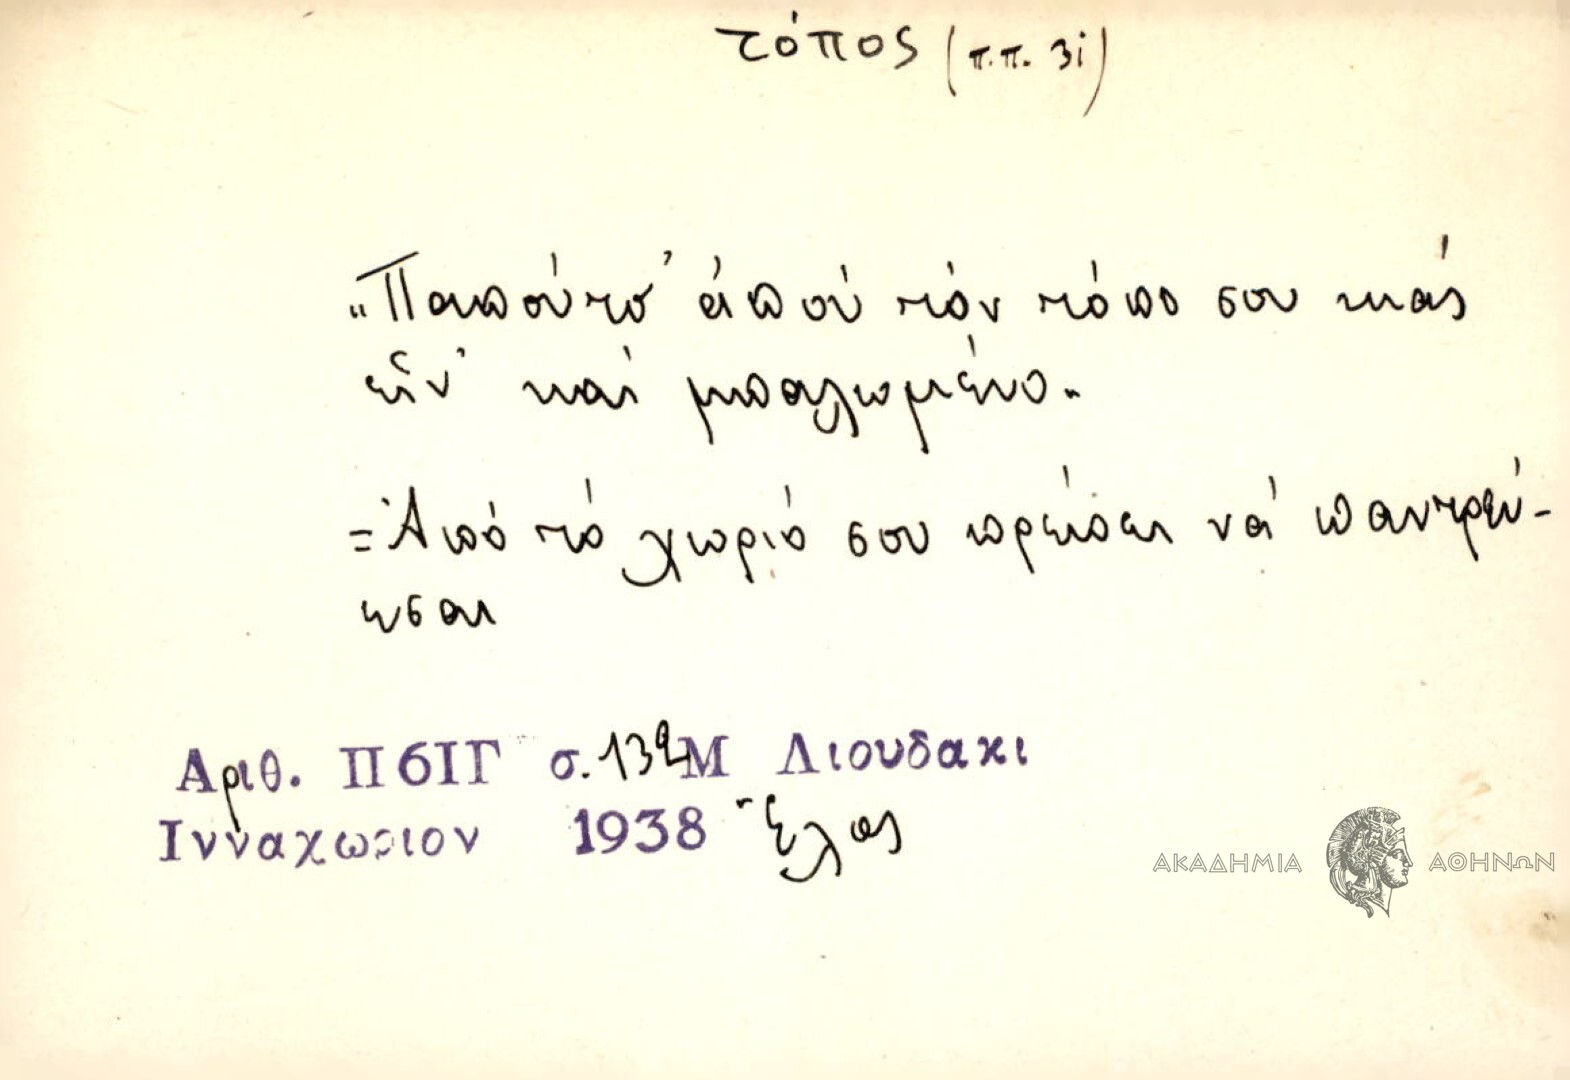 τόπος (π.π. 3i)
„Παπούτσ' ἀπού τόν τόπο σου κιάς
εἶν' καί μπαλωμένο.
= Ἀπό τό χωριό σου πρέπει νά παντρεύ-
εσαι
Αριθ. Π6ΙΓ σ. 132 Μ Λιουδακι
Ινναχωριον 1938 Ἕλος
ΑΚΑΔΗΜΙΑ ΑΘΗΝΩΝ